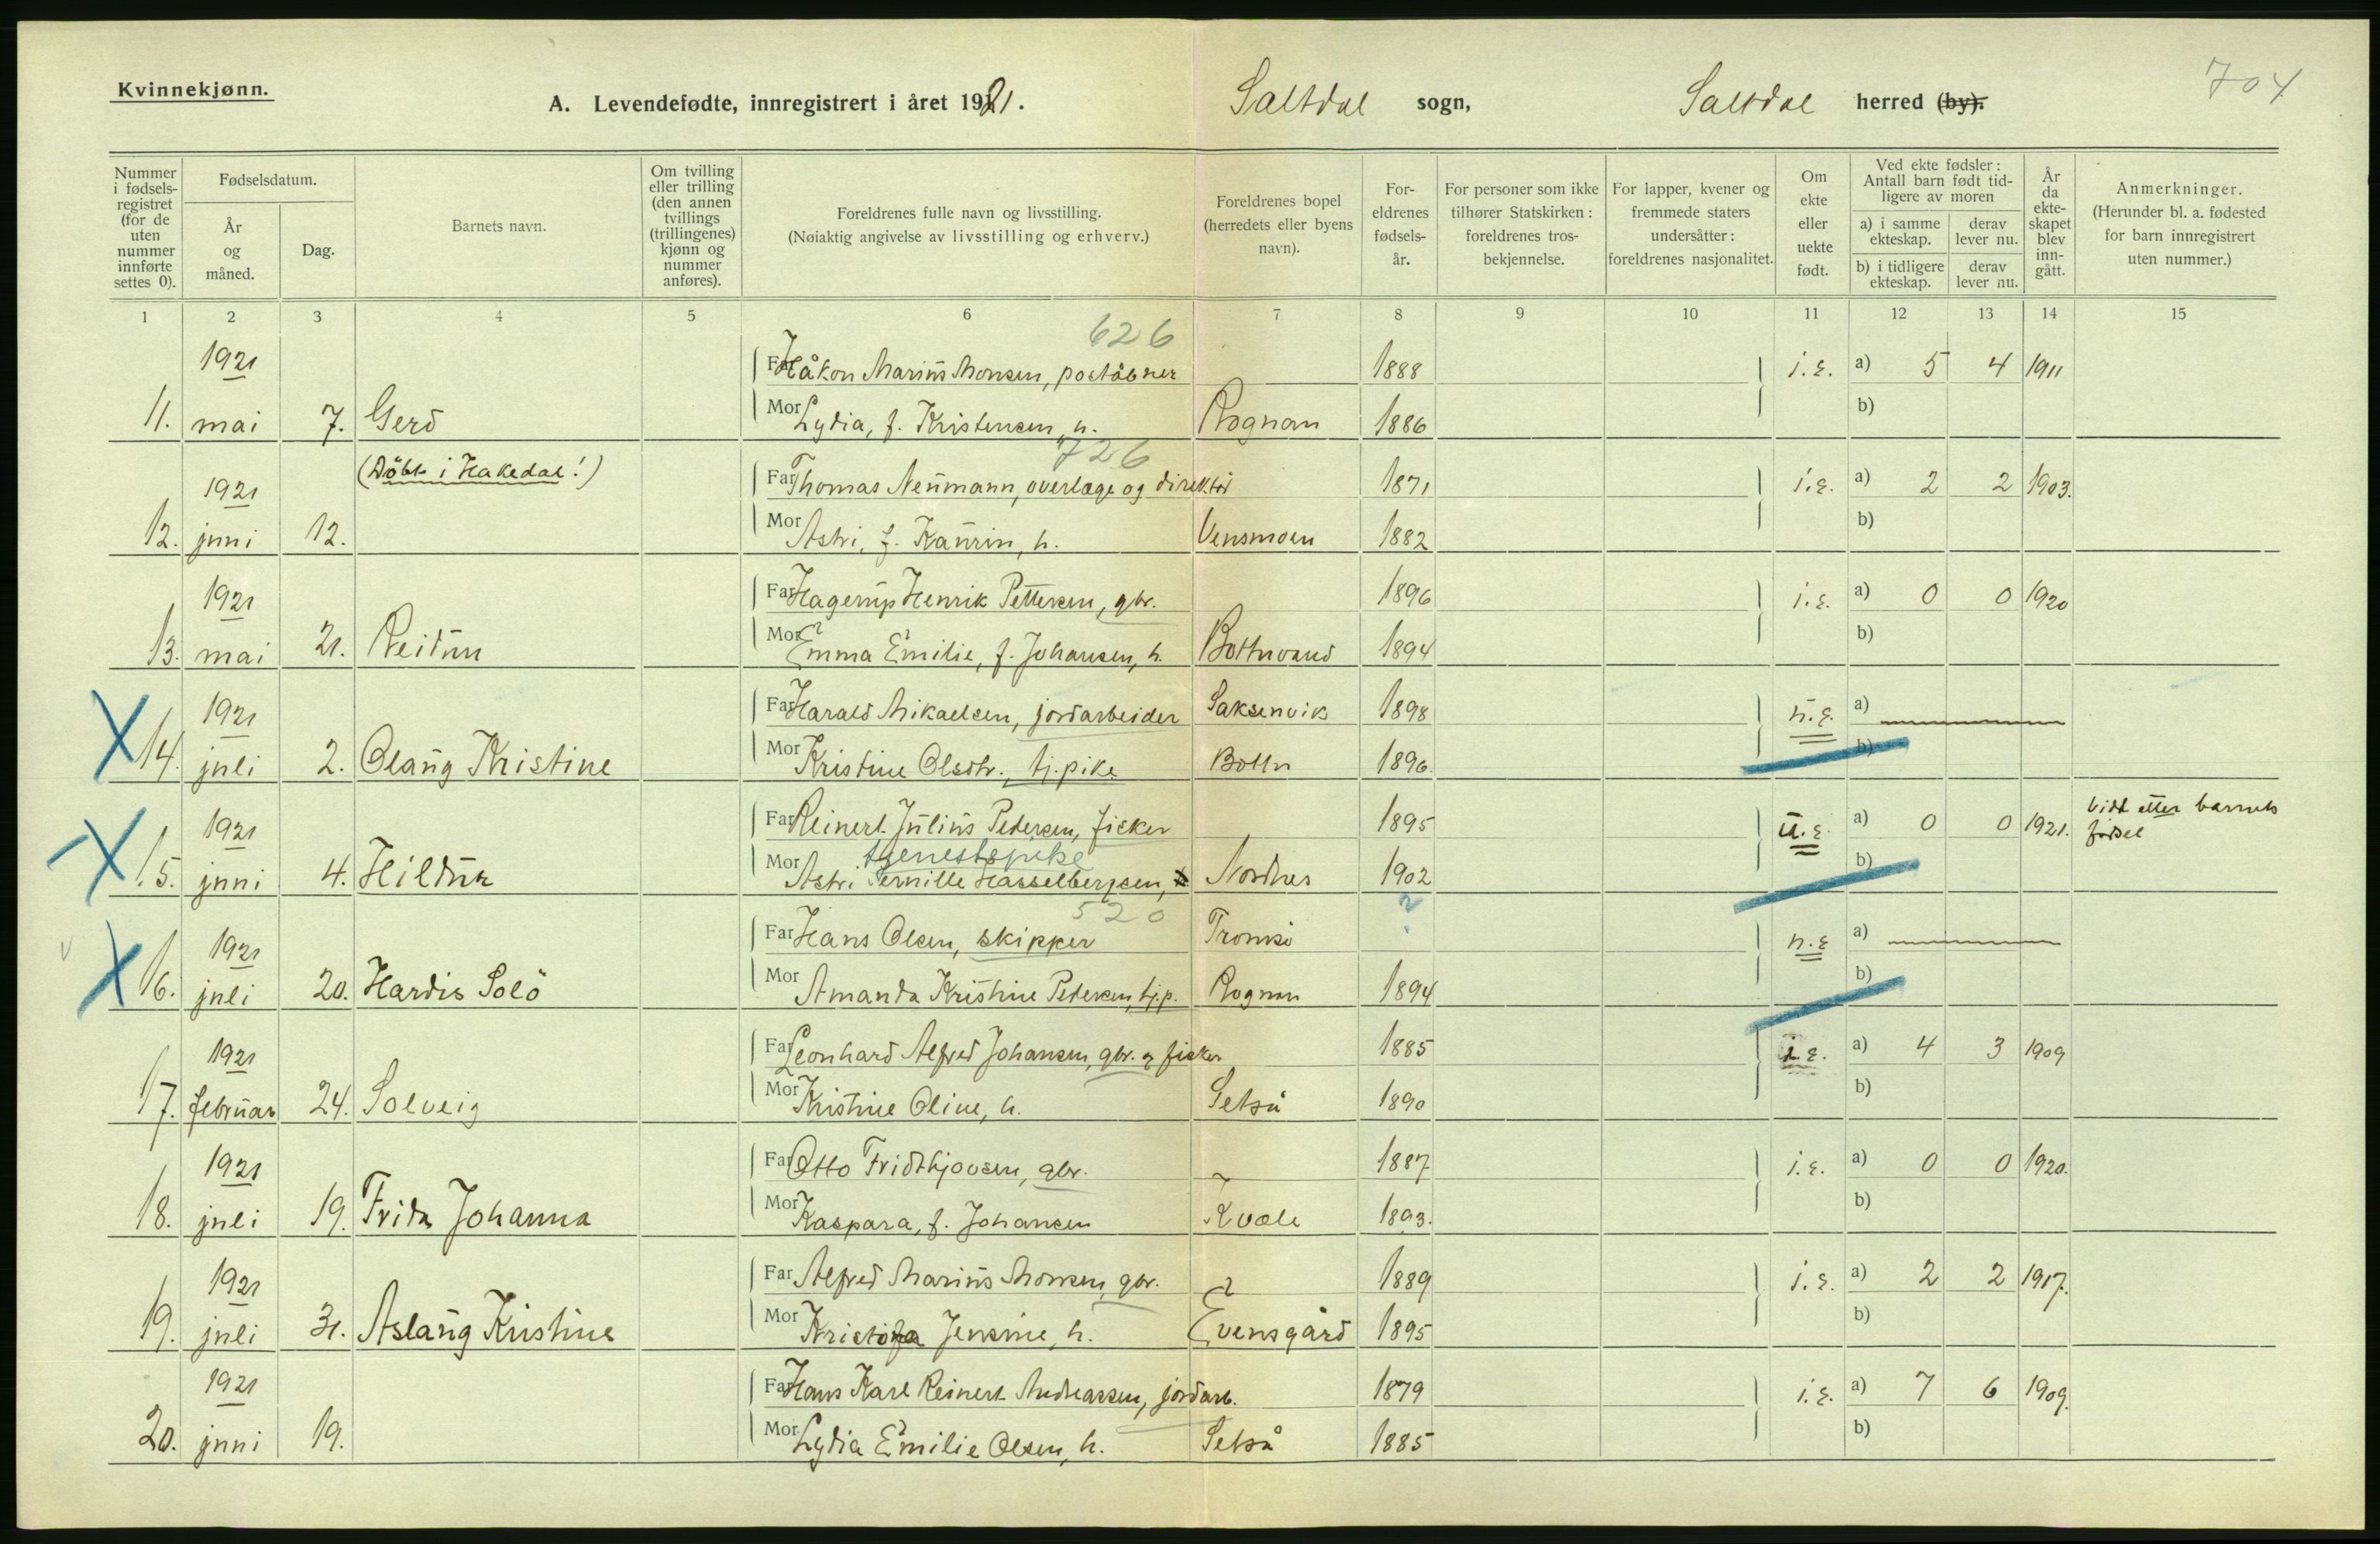 Kvinnekjønn.
A. Levendefødte, innregistrert i året 1921.
Saltdal sogn,
Saltdal herred (by).
704
Nummer i fødsels-registret (for de uten nummer innførte settes 0).
Fødselsdatum.
År og måned.
Dag.
Barnets navn.
Om tvilling eller trilling (den annen tvillings (trillingenes) kjønn og nummer anføres).
Foreldrenes fulle navn og livsstilling.
(Nøiaktig angivelse av livsstilling og erhverv.)
Foreldrenes bopel (herredets eller byens navn).
For-eldrenes fødsels-år.
For personer som ikke tilhører Statskirken: foreldrenes tros-bekjennelse.
For lapper, kvener og fremmede staters undersåtter: foreldrenes nasjonalitet.
Om ekte eller uekte født.
Ved ekte fødsler: Antall barn født tid-ligere av moren
a) i samme ekteskap.
derav lever nu.
b) i tidligere ekteskap.
derav lever nu.
År da ekte-skapet blev inn-gått.
Anmerkninger.
(Herunder bl. a. fødested for barn innregistrert uten nummer.)
1 2 3 4 5 6 7 8 9 10 11 12 13 14 15
626
1921 Far Håkon Marius Monsen, poståbner 1888 i.e. a) 5 4 1911
11. mai 7. Gerd Mor Lydia, f. Kristensen, h. Rognan 1886 b)
726
(Döbt i Hakedal!)
1921 Far Thomas Neumann, overlæge og direktør 1871 i.e. a) 2 2 1903.
12. juni 12. Mor Astri, f. Kaurin, h. Vensmoen 1882 b)
1921 Far Hagerup Henrik Pettersen, gbr. 1896 i.e. a) 0 0 1920
13. mai 21. Reidun Mor Emma Emilie, f. Johansen, h. Bottnvand 1894 b)
1921 Far Harald Mikaelsen, jordarbeider Saksenvik 1898 u.e. a)
14. juli 2. Olaug Kristine Mor Kristine Olsdtr., tj.pike Bottn 1896. b)
1921 Far Reinert Julius Petersen, fisker 1895 u.e. a) 0 0 1921. Vidt etter barnets fødsel
tjenestepike
15. juni 4. Hildur Mor Astri Pernille Hasselbergsen, Nordnes 1902 b)
520
1921 Far Hans Olsen, skipper Tromsö ? u.e. a)
16. juli 20. Hardis Solö Mor Amanda Kristine Petersen, tj.p. Rognan 1894 b)
1921 Far Leonhard Alfred Johansen, gbr. og fisker 1885 i.e. a) 4 3 1909
17. februar 24. Solveig Mor Kristine Oline, h. Setså 1890 b)
1921 Far Otto Fridthjovsen, gbr. 1887 i.e. a) 0 0 1920.
18. juli 19. Frida Johanna Mor Kaspara, f. Johansen Kvæle 1893. b)
1921 Far Alfred Marius Monsen, gbr. 1889 i.e. a) 2 2 1917.
19. juli 31. Aslaug Kristine Mor Kristofa Jensine, h. Evensgård 1895 b)
1921 Far Hans Karl Reinert Andreassen, jordarb. 1879 i.e. a) 7 6 1909.
20. juni 19. Mor Lydia Emilie Olsen, h. Setså 1885 b)